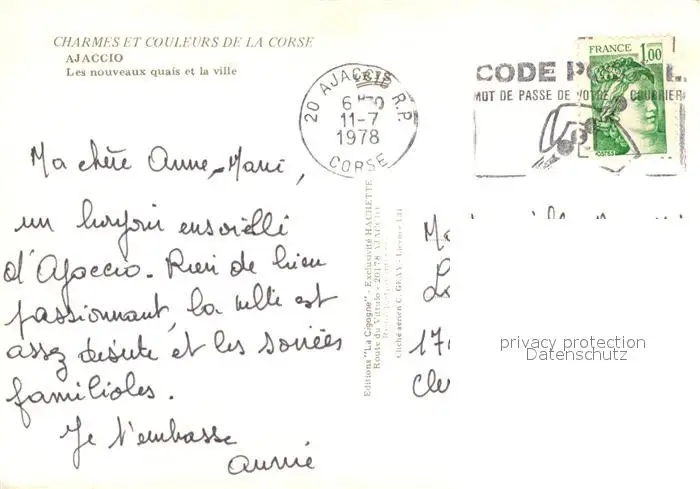 CHARMES ET COULEURS DE LA CORSE
AJACCIO
Les nouveaux quais et la ville
20 AJACCIO R.P.
11-7
1978
CORSE
FRANCE 1,00
CODE POSTAL
MOT DE PASSE DE VOTRE COURRIER
POSTES
Ma chère Anne-Marie,
un bonjour ensoleillé
d'Ajaccio. Rien de bien
passionnant, la ville est
assez désuète et les soirées
familiales.
Je t'embrasse
Annie
Editions "La Cigogne" - Exclusivité HACHETTE
Route du Vittulo - 20178 AJACCIO
Cliché aérien C. GEAY - Licence
privacy protection
Datenschutz